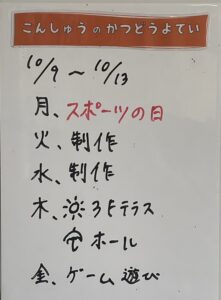 こんしゅうのかつどうよてい
10/9 ～ 10/13
月、スポーツの日
火、制作
水、制作
木、☼ 3Fテラス
☂ ホール
金、ゲーム遊び